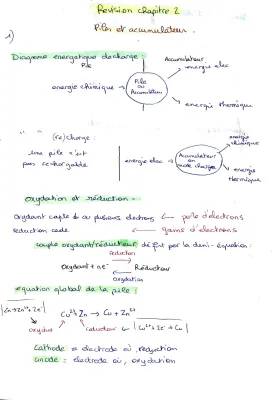 Révision chapitre 2
Piles et accumulateur.
1)
Diagramme énergétique décharge :
Pile
Accumulateur
énergie elec
énergie chimique
Pile ou Accumulateur
énergie thermique
(re)charge :
une pile n'est pas rechargeable
énergie elec
Accumulateur en mode charge
énergie chimique
énergie thermique
oxydation et réduction :
oxydant capte 1 ou plusieurs électrons
perte d'électrons
réduction cède
gains d'électrons
couple oxydant/réducteur défini par la demi-équation :
réduction
oxydant + ne⁻ Réducteur
oxydation
équation global de la pile :
Zn → Zn²⁺ + 2e⁻
Cu²⁺ Zn → Cu + Zn²⁺
oxydant
réducteur
Cu²⁺ + 2e⁻ → Cu
cathode = électrode où, réduction
anode = électrode où, oxydation